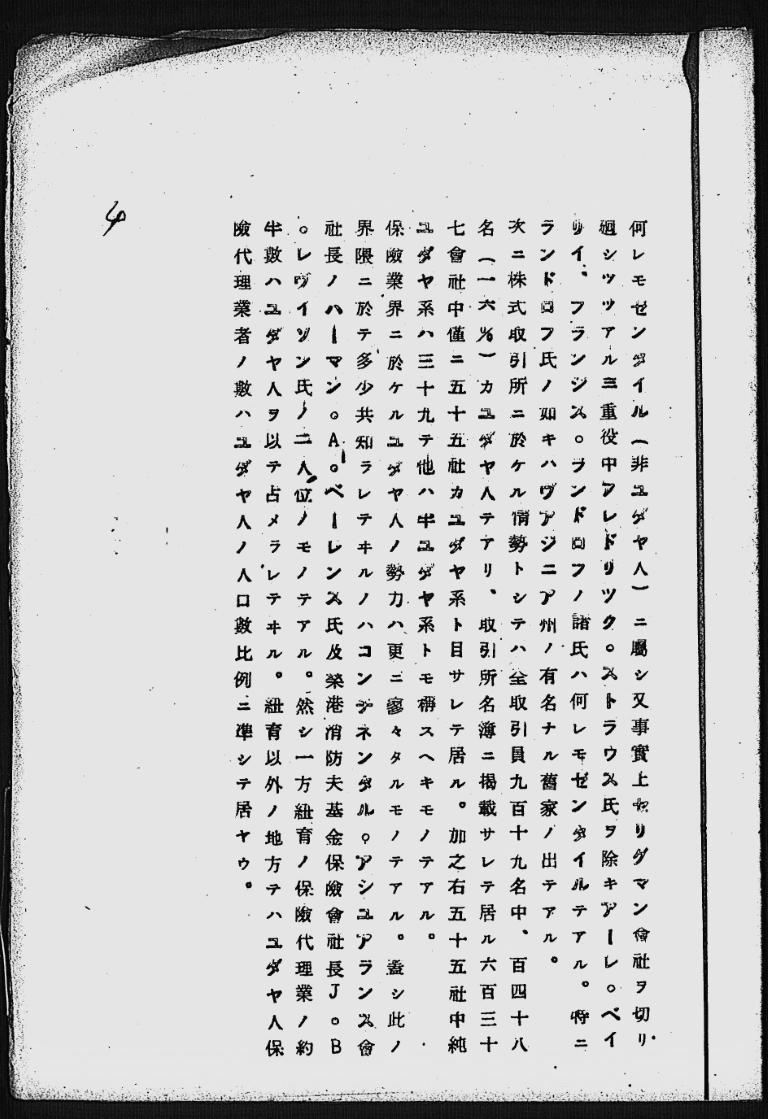 何レモゼンダイル（非ユダヤ人）ニ屬シ又事實上セリグマン會社ヲ切リ
廻シツツアル三重役中フレドリツク。ストラウス氏ヲ除キアーレ。ベイ
リイ、フランシス。ランドロフノ諸氏ハ何レモゼンタイルテアル。特ニ
ランドロフ氏ノ如キハヴアジニア州ノ有名ナル舊家ノ出テアル。
次ニ株式取引所ニ於ケル情勢トシテハ全取引員九百十九名中、百四十八
名（一六％）カユダヤ人テアリ、取引所名簿ニ揭載サレテ居ル六百三十
七會社中僅ニ五十五社カユダヤ系ト目サレテ居ル。加之右五十五社中純
ユダヤ系ハ三十九テ他ハ半ユダヤ系トモ稱スヘキモノテアル。
保險業界ニ於ケルユダヤ人ノ勢力ハ更ニ寥々タルモノテアル。蓋シ此ノ
界隈ニ於テ多少共知ラレテヰルノハコンチネンタル。アシユアランス會
社長ノハーマン。A。ベーレンス氏及桑港消防夫基金保險會社長J。B
。レヴイソン氏ノ二人位ノモノテアル。然シ一方紐育ノ保險代理業ノ約
半數ハユダヤ人ヲ以テ占メラレテヰル。紐育以外ノ地方テハユダヤ人保
險代理業者ノ數ハユダヤ人ノ人口數比例ニ準シテ居ヤウ。
4